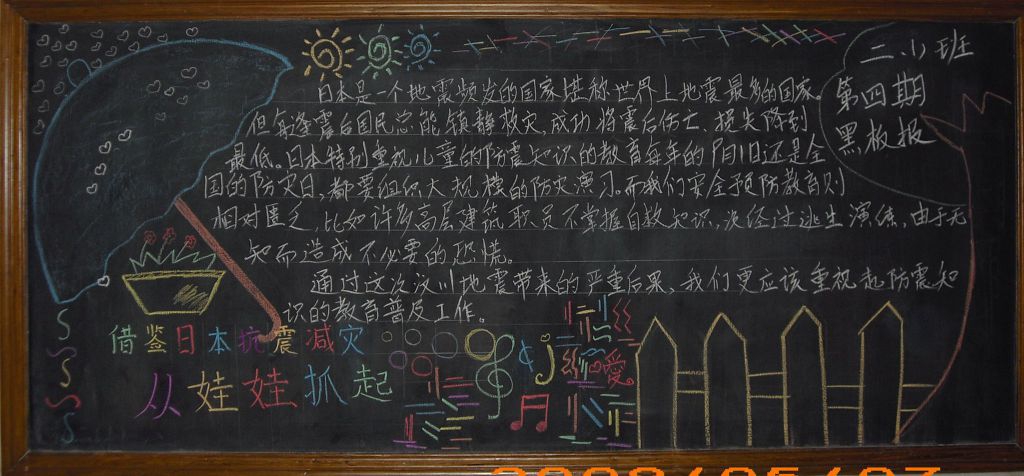 日本是一个地震频发的国家堪称世界上地震最多的国家。
但每逢震后国民总能镇静救灾,成功将震后伤亡、损失降到
最低。日本特别重视儿童的防震知识的教育每年的9月1日还是全
国的防灾日,都要组织大规模的防灾演习,而我们安全预防教育则
相对匮乏,比如许多高层建筑职员不掌握自救知识,没经过逃生演练,由于无
知而造成不必要的恐慌。
通过这次汶川地震带来的严重后果、我们更应该重视起防震知
识的教育普及工作。
二.小班
第四期
黑板报
借鉴日本抗震减灾
从娃娃抓起
爱